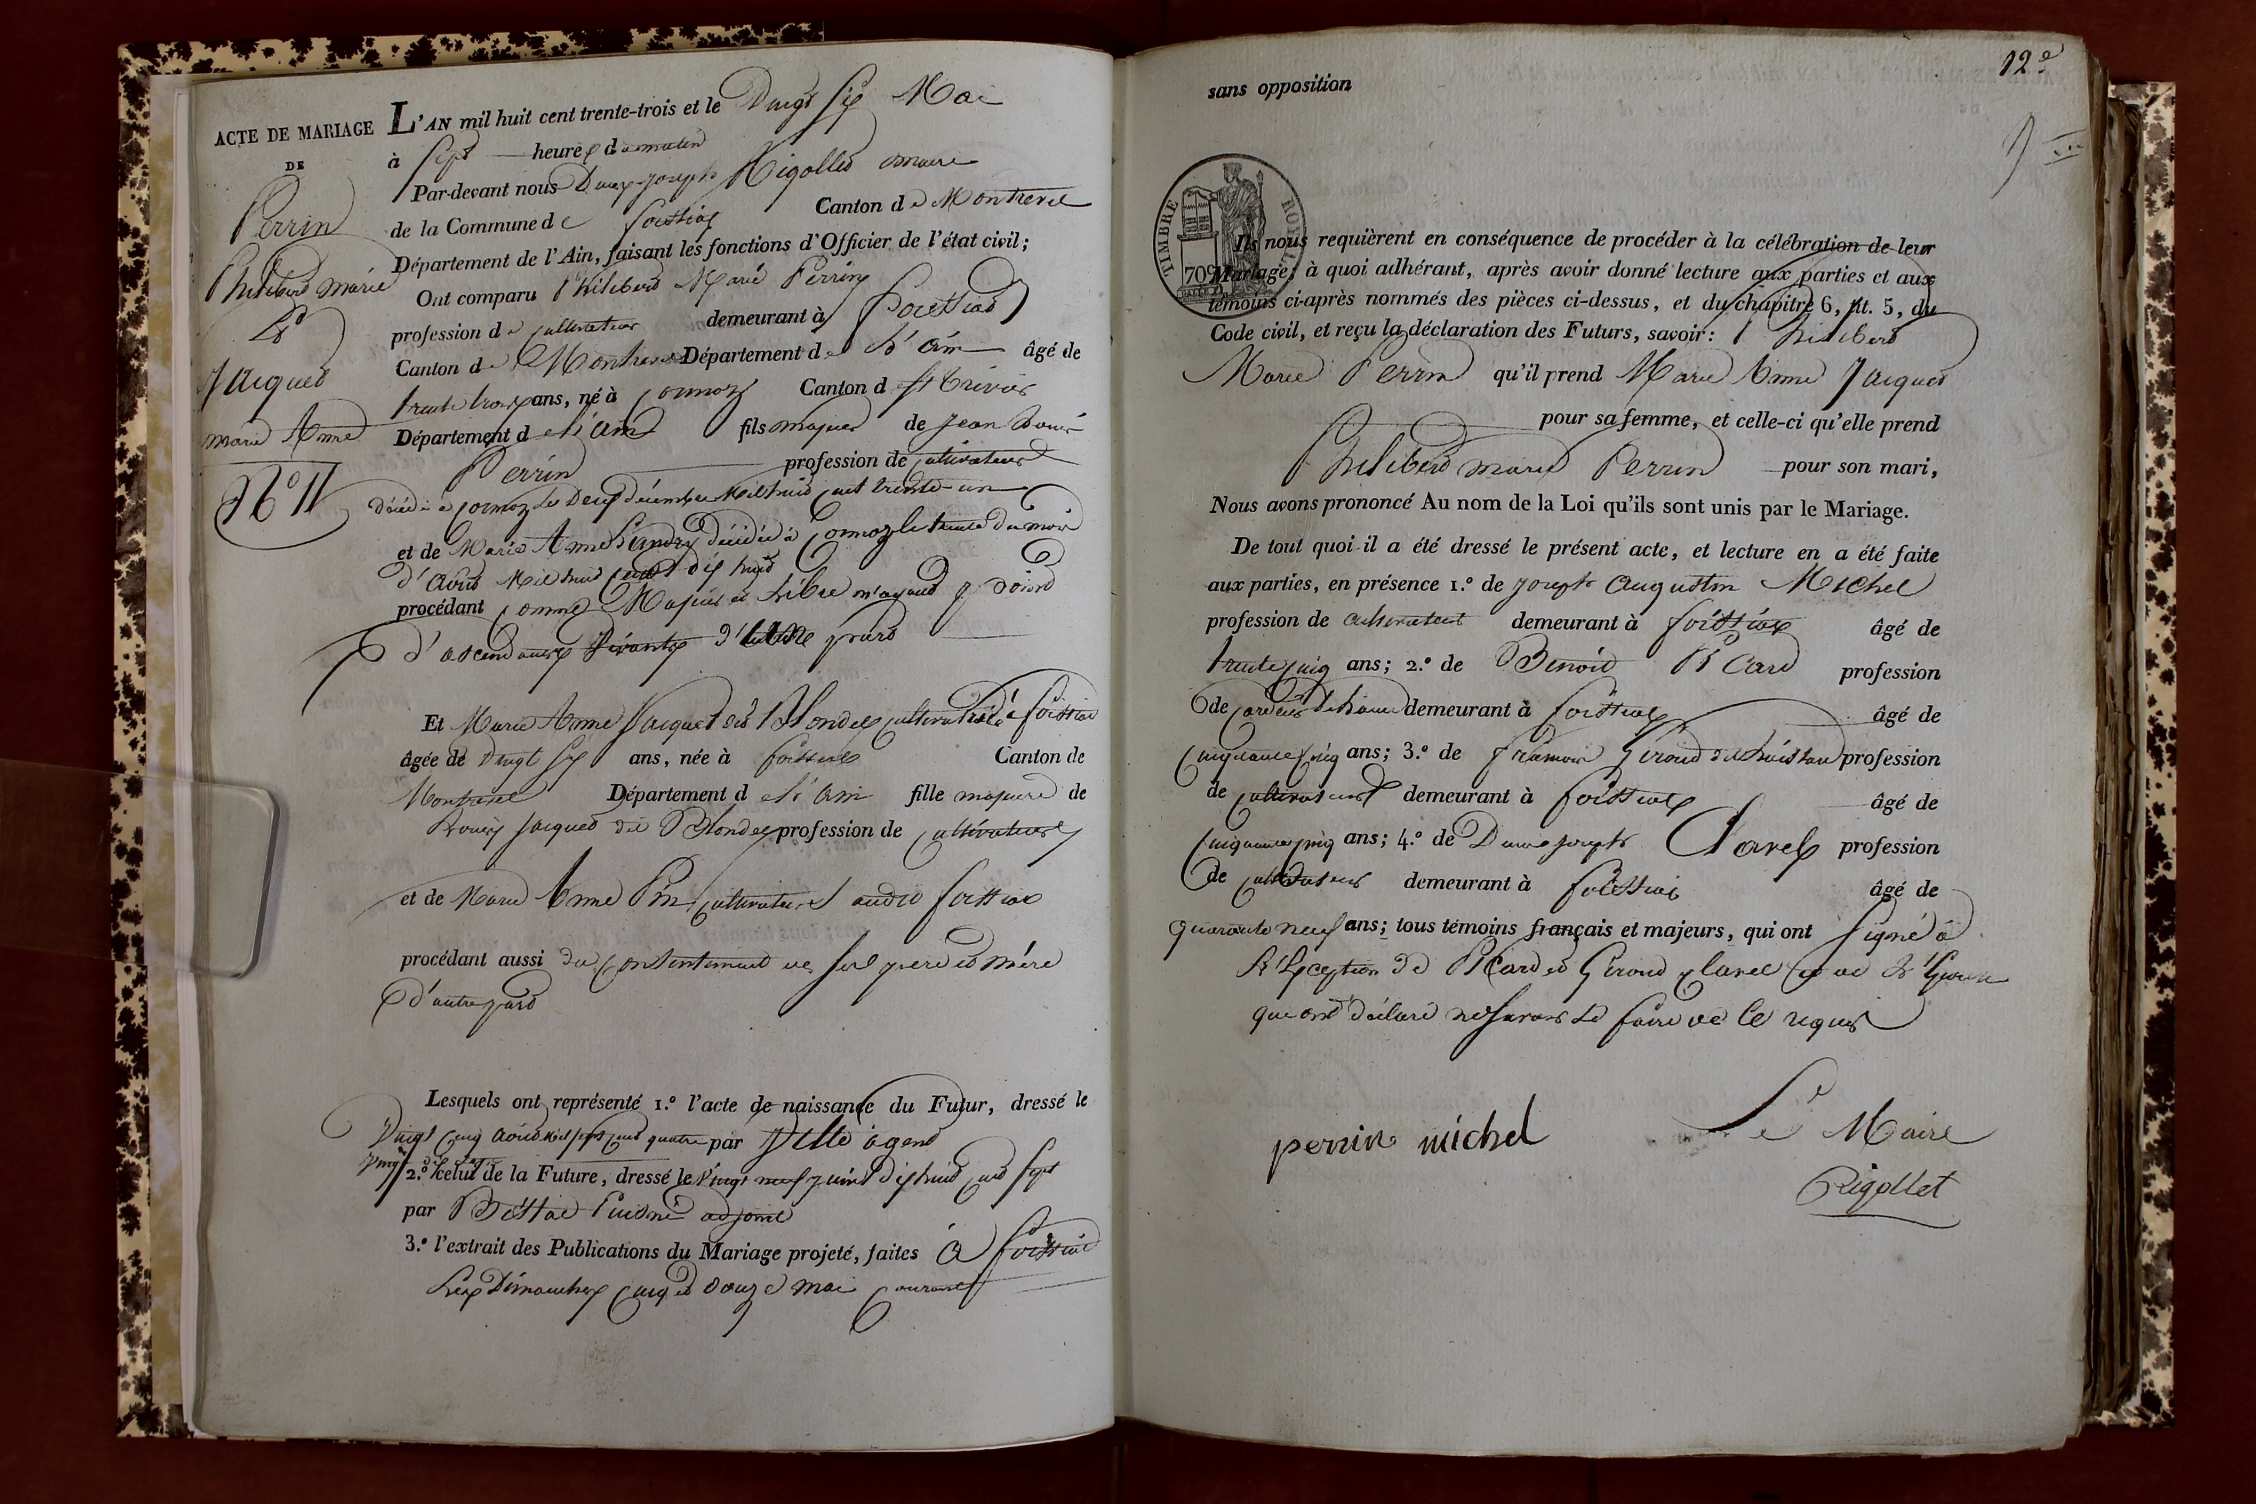 ACTE DE MARIAGE
DE
Perrin
Philibert marie
Et
Jacquet
marie Anne
N° 11
L'AN mil huit cent trente-trois et le Vingt Six Mai
à Sept heures du matin
Par-devant nous Joseph Rigollet maire
de la Commune de foissiat Canton de Montrevel
Département de l'Ain, faisant les fonctions d'Officier de l'état civil;
Ont comparu Philibert Marie Perrin
profession de cultivateur demeurant à foissiat
Canton de Montrevel Département de l'Ain âgé de
trente trois ans, né à Cormoz Canton de St Trivier
Département de l'ain fils majeur de Jean
Perrin profession de cultivateur
décédé à Cormoz le Deux décembre Mil huit cent trente un
et de Marie Anne décédée à Cormoz le trente du mois
d'avril Mil huit cent dix huit
procédant comme Majeur et libre n'ayant point
d'ascendants vivants d'une part
Et Marie Anne Jacquet dit Blondel cultivatrice à foissiat
âgée de Vingt Six ans, née à foissiat Canton de
Montrevel Département de l'Ain fille majeure de
Jacquet dit Blondel profession de cultivateur
et de Marie Anne Pin cultivateurs audit foissiat
procédant aussi du Consentement de ses pere et mère
d'autre part
Lesquels ont représenté 1.° l'acte de naissance du Futur, dressé le
Vingt cinq par agent
2.° celui de la Future, dressé le Vingt neuf juin dix huit cent sept
par adjoint
3.° l'extrait des Publications du Mariage projeté, faites à foissiat
les Dimanches cinq et douze mai courant
12e
sans opposition
TIMBRE ROYAL
70c
Ils nous requièrent en conséquence de procéder à la célébration de leur
Mariage; à quoi adhérant, après avoir donné lecture aux parties et aux
témoins ci-après nommés des pièces ci-dessus, et du chapitre 6, tit. 5, du
Code civil, et reçu la déclaration des Futurs, savoir: Philibert
Marie Perrin qu'il prend Marie Anne Jacquet
pour sa femme, et celle-ci qu'elle prend
Philibert marie Perrin pour son mari,
Nous avons prononcé Au nom de la Loi qu'ils sont unis par le Mariage.
De tout quoi il a été dressé le présent acte, et lecture en a été faite
aux parties, en présence 1.° de joseph augustin Michel
profession de cultivateur demeurant à foissiat âgé de
trente cinq ans; 2.° de Benoit Picard profession
de demeurant à foissiat âgé de
Cinquante cinq ans; 3.° de Giroud profession
de cultivateur demeurant à foissiat âgé de
Cinquante cinq ans; 4.° de joseph Clavel profession
de cultivateur demeurant à foissiat âgé de
quarante neuf ans; tous témoins français et majeurs, qui ont Signé à
L'Exception de Picard et Giroud Clavel et de L'Epouse
qui ont déclaré ne savoir le faire de ce requis
perrin michel
Le Maire
Rigollet